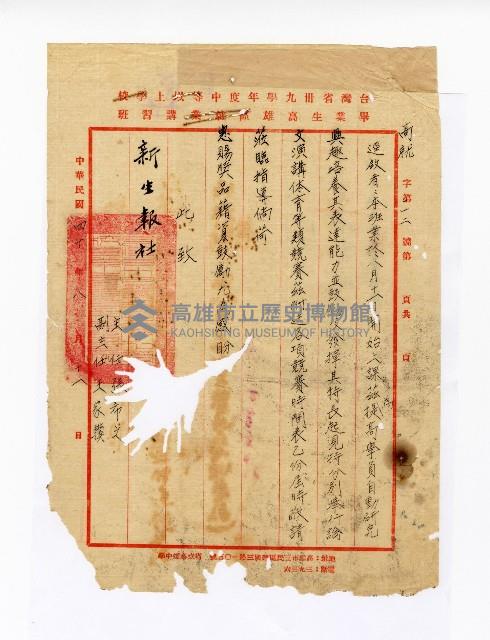 台灣省卅九學年度中等以上學校
畢業生高雄區就業講習班
高就 字第一二號第 頁共 頁
逕啟者：本班業於八月十一日開始上課茲提高學員自動研究
興趣培養其表達能力並發揮其特長起見特分別舉行論
文演講体育等類競賽茲附送各項競賽時間表乙份屆時敬請
蒞臨指導倘荷
惠賜獎品藉資鼓勵尤為感盼
此致
新生報社
主任張希文
副主任王家驥
中華民國四十年八月十八日
高雄市立歷史博物館
KAOHSIUNG MUSEUM OF HISTORY